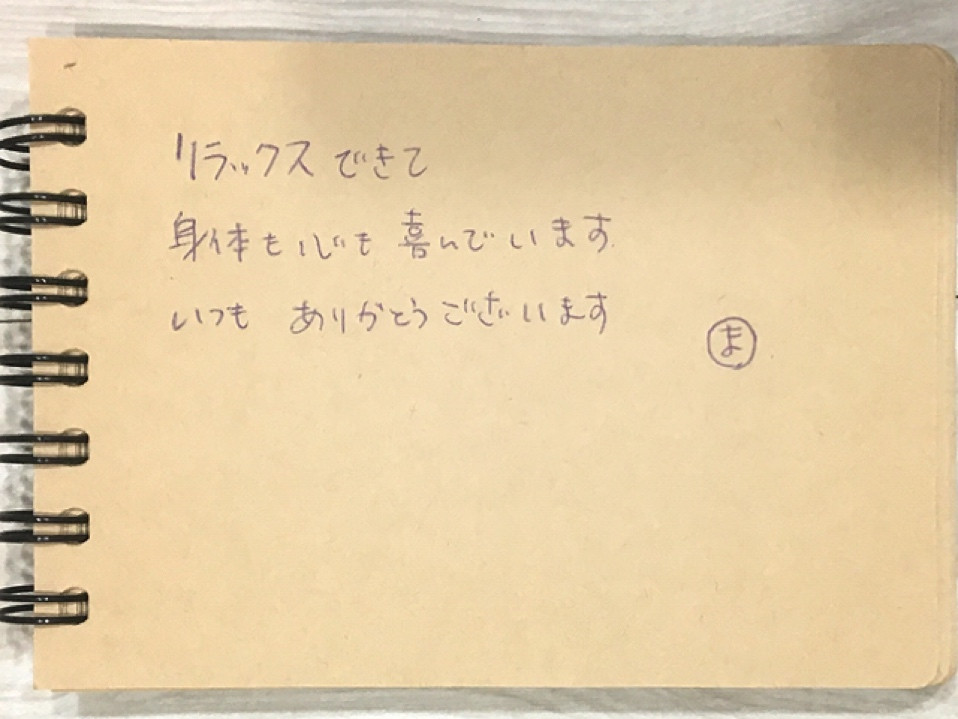 リラックスできて
身体も心も 喜んでいます
いつも ありがとうございます
ま